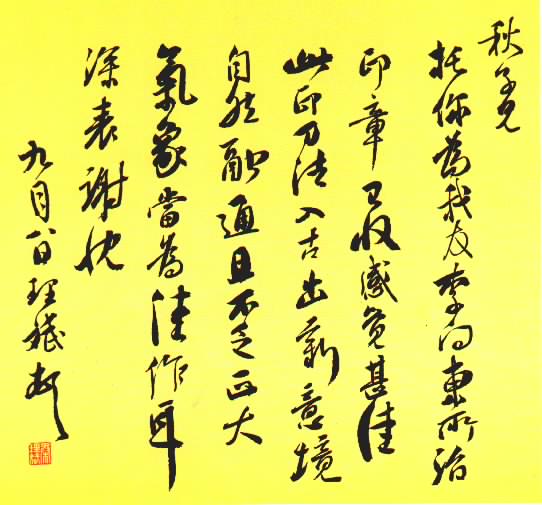 秋兄
托你為我友李向東所治
印章已收感覺甚佳
此印刀法入古出新意境
自然融通且不乏正大
氣象當為佳作耳
深表謝忱
九月八日理